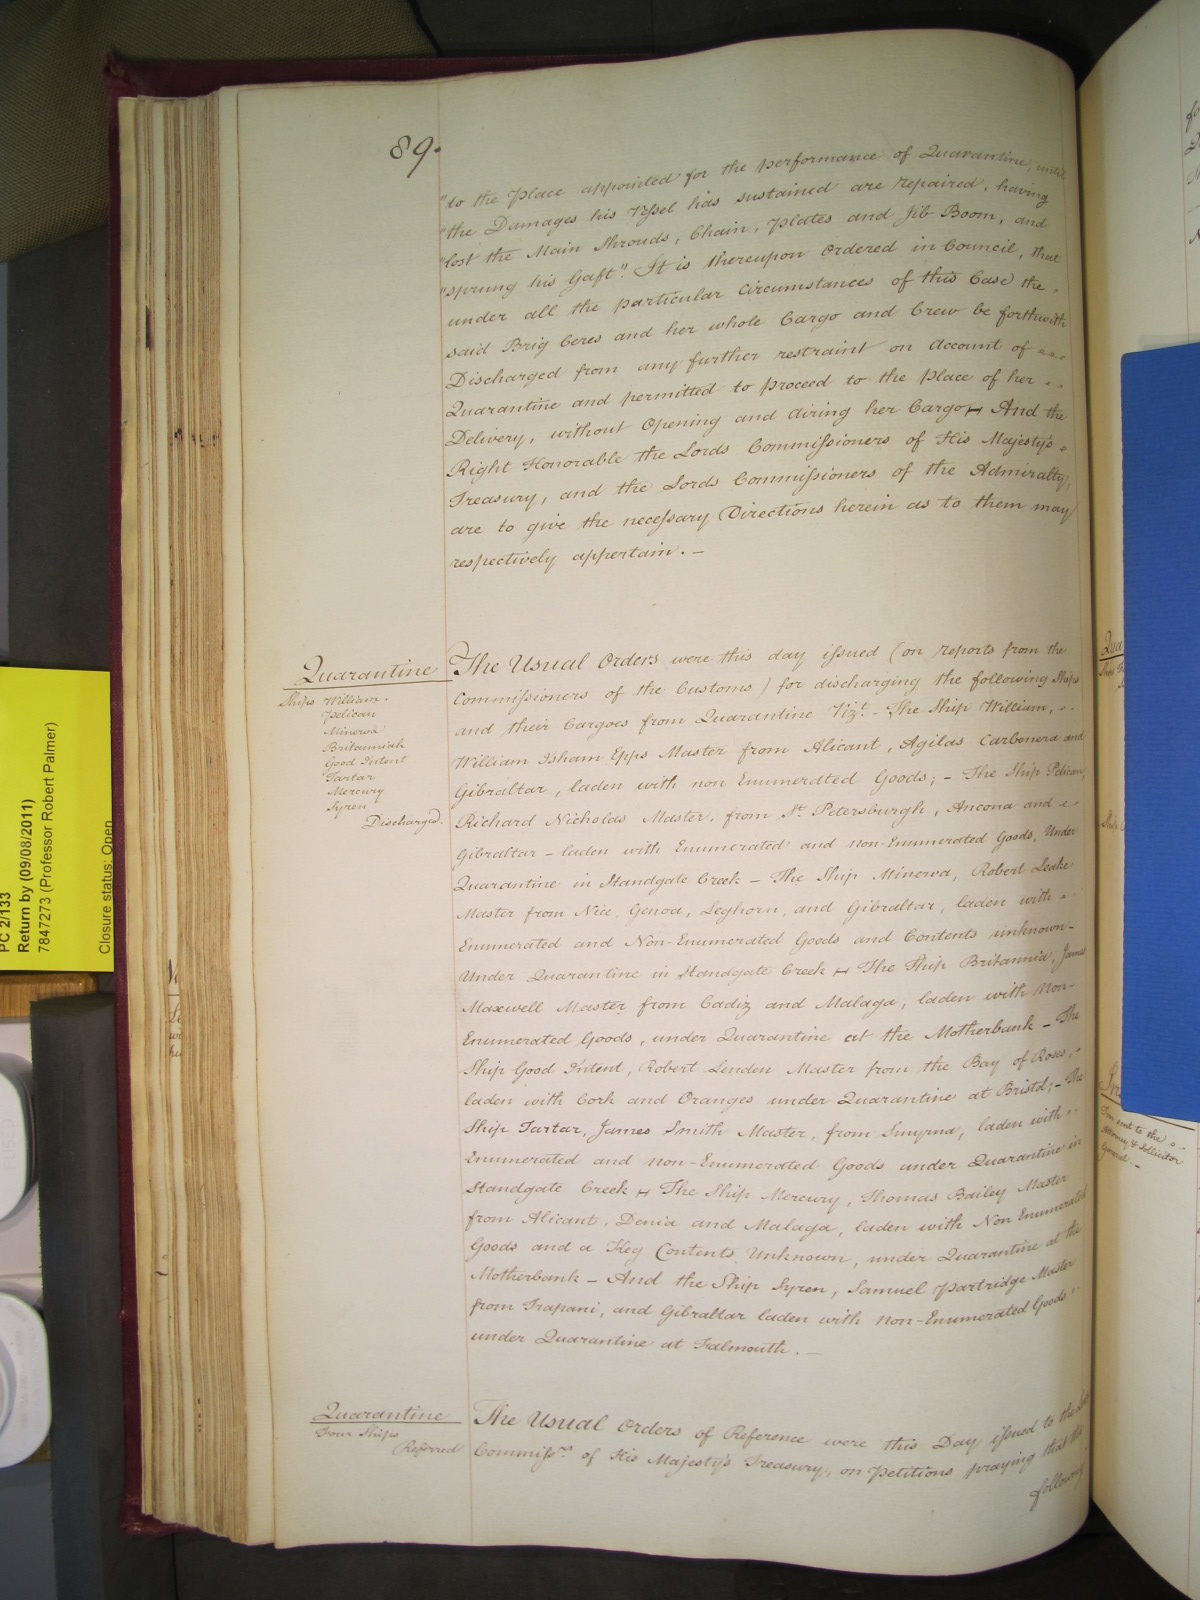 89.
"to the Place appointed for the performance of Quarantine, until
"the Damages his Vessel has sustained are repaired, having
"lost the Main Shrouds, Chain, Plates and Jib Boom, and
"sprung his Gaft". It is thereupon Ordered in Council, that
under all the particular Circumstances of this Case the
said Brig Ceres and her whole Cargo and Crew be forthwith
Discharged from any further restraint on Account of
Quarantine and permitted to proceed to the Place of her
Delivery, without Opening and Airing her Cargo – And the
Right Honorable the Lords Commissioners of His Majesty's
Treasury, and the Lords Commissioners of the Admiralty,
are to give the necessary Directions herein as to them may
respectively appertain. –
Quarantine
Ships William.
Pelican
Minerva
Britanniah
Good Intent
Tartar
Mercury
Syren
Discharged.
The Usual Orders were this day issued (on reports from the
Commissioners of the Customs) for discharging the following Ships
and their Cargoes from Quarantine Vizt. – The Ship William,
William Isham Epps Master from Alicant, Agilas Carbonera and
Gibraltar, laden with non Enumerated Goods; – The Ship Pelican,
Richard Nicholas Master, from St. Petersburgh, Ancona and
Gibraltar – laden with Enumerated and non-Enumerated Goods, Under
Quarantine in Standgate Creek – The Ship Minerva, Robert Leake
Master from Nice, Genoa, Leghorn, and Gibraltar, laden with
Enumerated and Non-Enumerated Goods and Contents unknown –
Under Quarantine in Standgate Creek – The Ship Britannia, James
Maxwell Master from Cadiz and Malaga, laden with Non-
Enumerated Goods, under Quarantine at the Motherbank – The
Ship Good Intent, Robert Lenden Master from the Bay of Roses,
laden with Cork and Oranges under Quarantine at Bristol; – The
Ship Tartar, James Smith Master, from Smyrna, laden with
Enumerated and non-Enumerated Goods under Quarantine in
Standgate Creek – The Ship Mercury, Thomas Bailey Master
from Alicant, Denia and Malaga, laden with Non Enumerated
Goods and a Keg Contents Unknown, under Quarantine at the
Motherbank – And the Ship Syren, Samuel Partridge Master
from Trapani, and Gibraltar laden with Non-Enumerated Goods
under Quarantine at Falmouth. –
Quarantine
Four Ships
Referred
The Usual Orders of Reference were this Day issued to the
Commissrs. of His Majesty's Treasury, on Petitions praying that the
following
PC 2/133
Return by (09/08/2011)
7847273 (Professor Robert Palmer)
Closure status: Open
sent to the
Attorney & Sollicitor
General. –